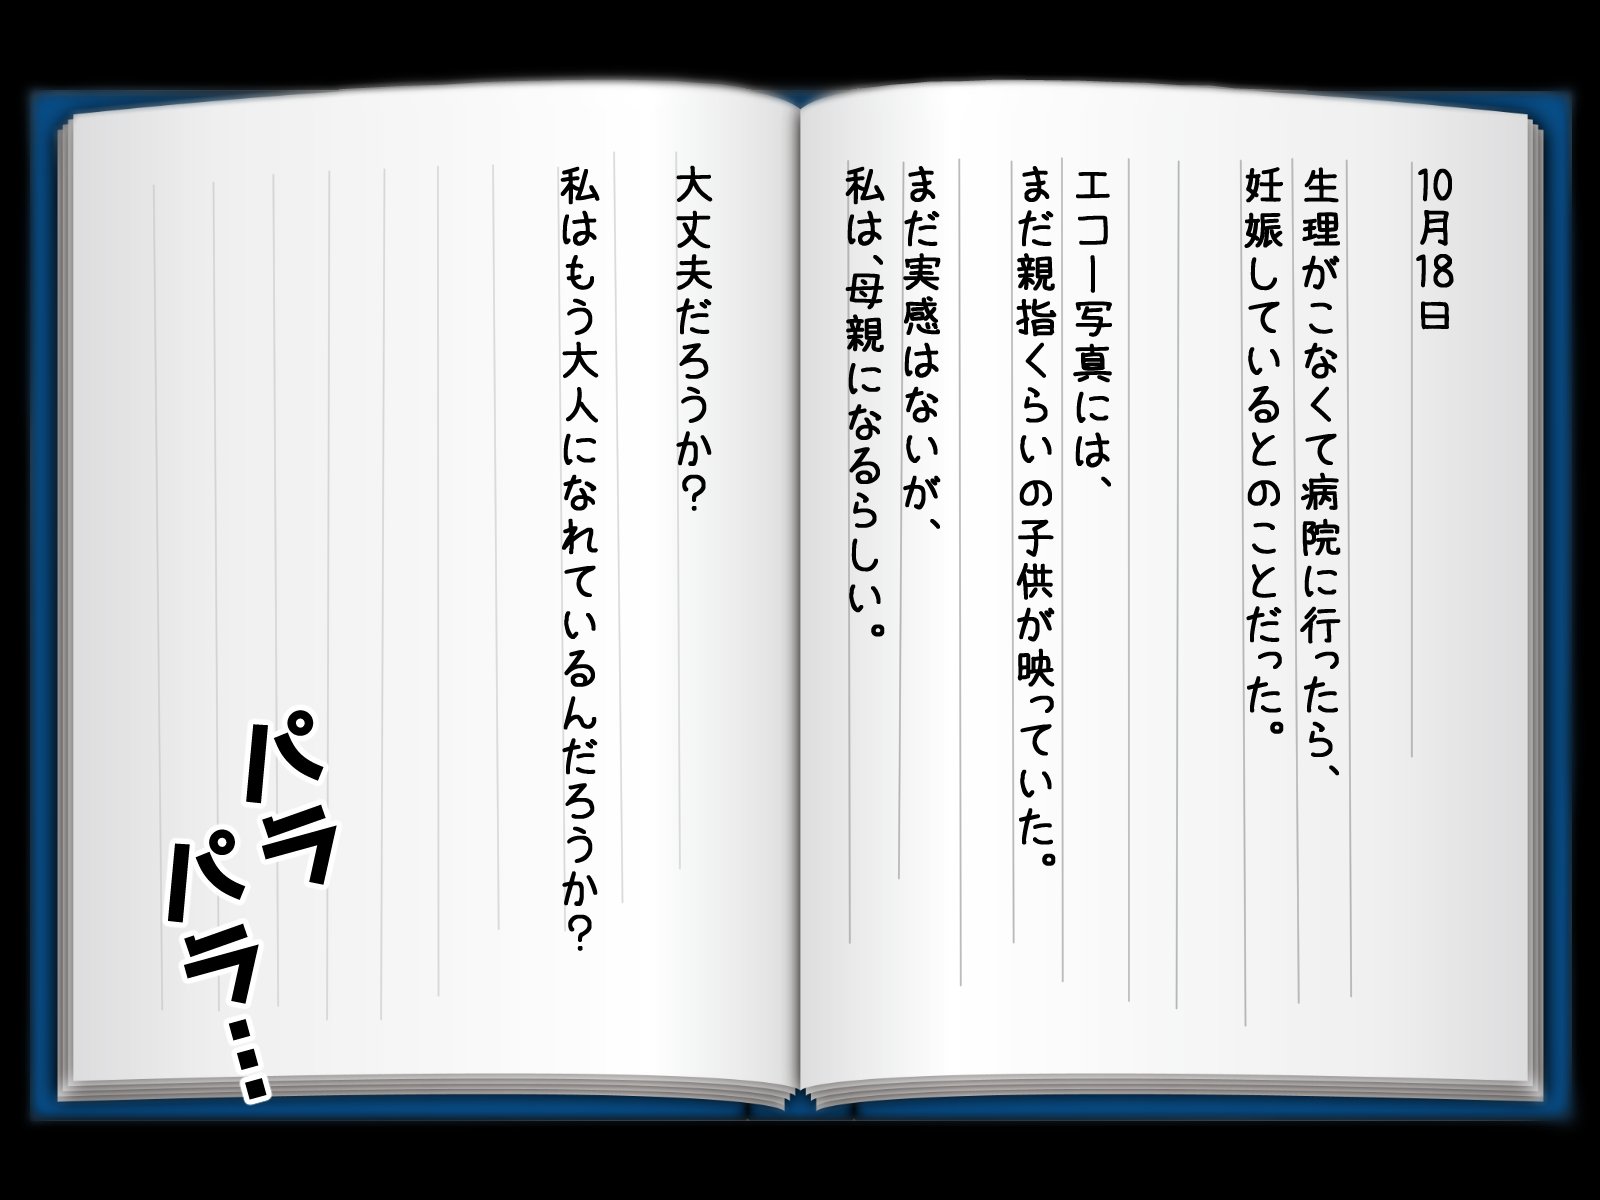 10月18日
生理がこなくて病院に行ったら、
妊娠しているとのことだった。
エコー写真には、
まだ親指くらいの子供が映っていた。
まだ実感はないが、
私は、母親になるらしい。
大丈夫だろうか？
私はもう大人になれているんだろうか？
パラ
パラ…